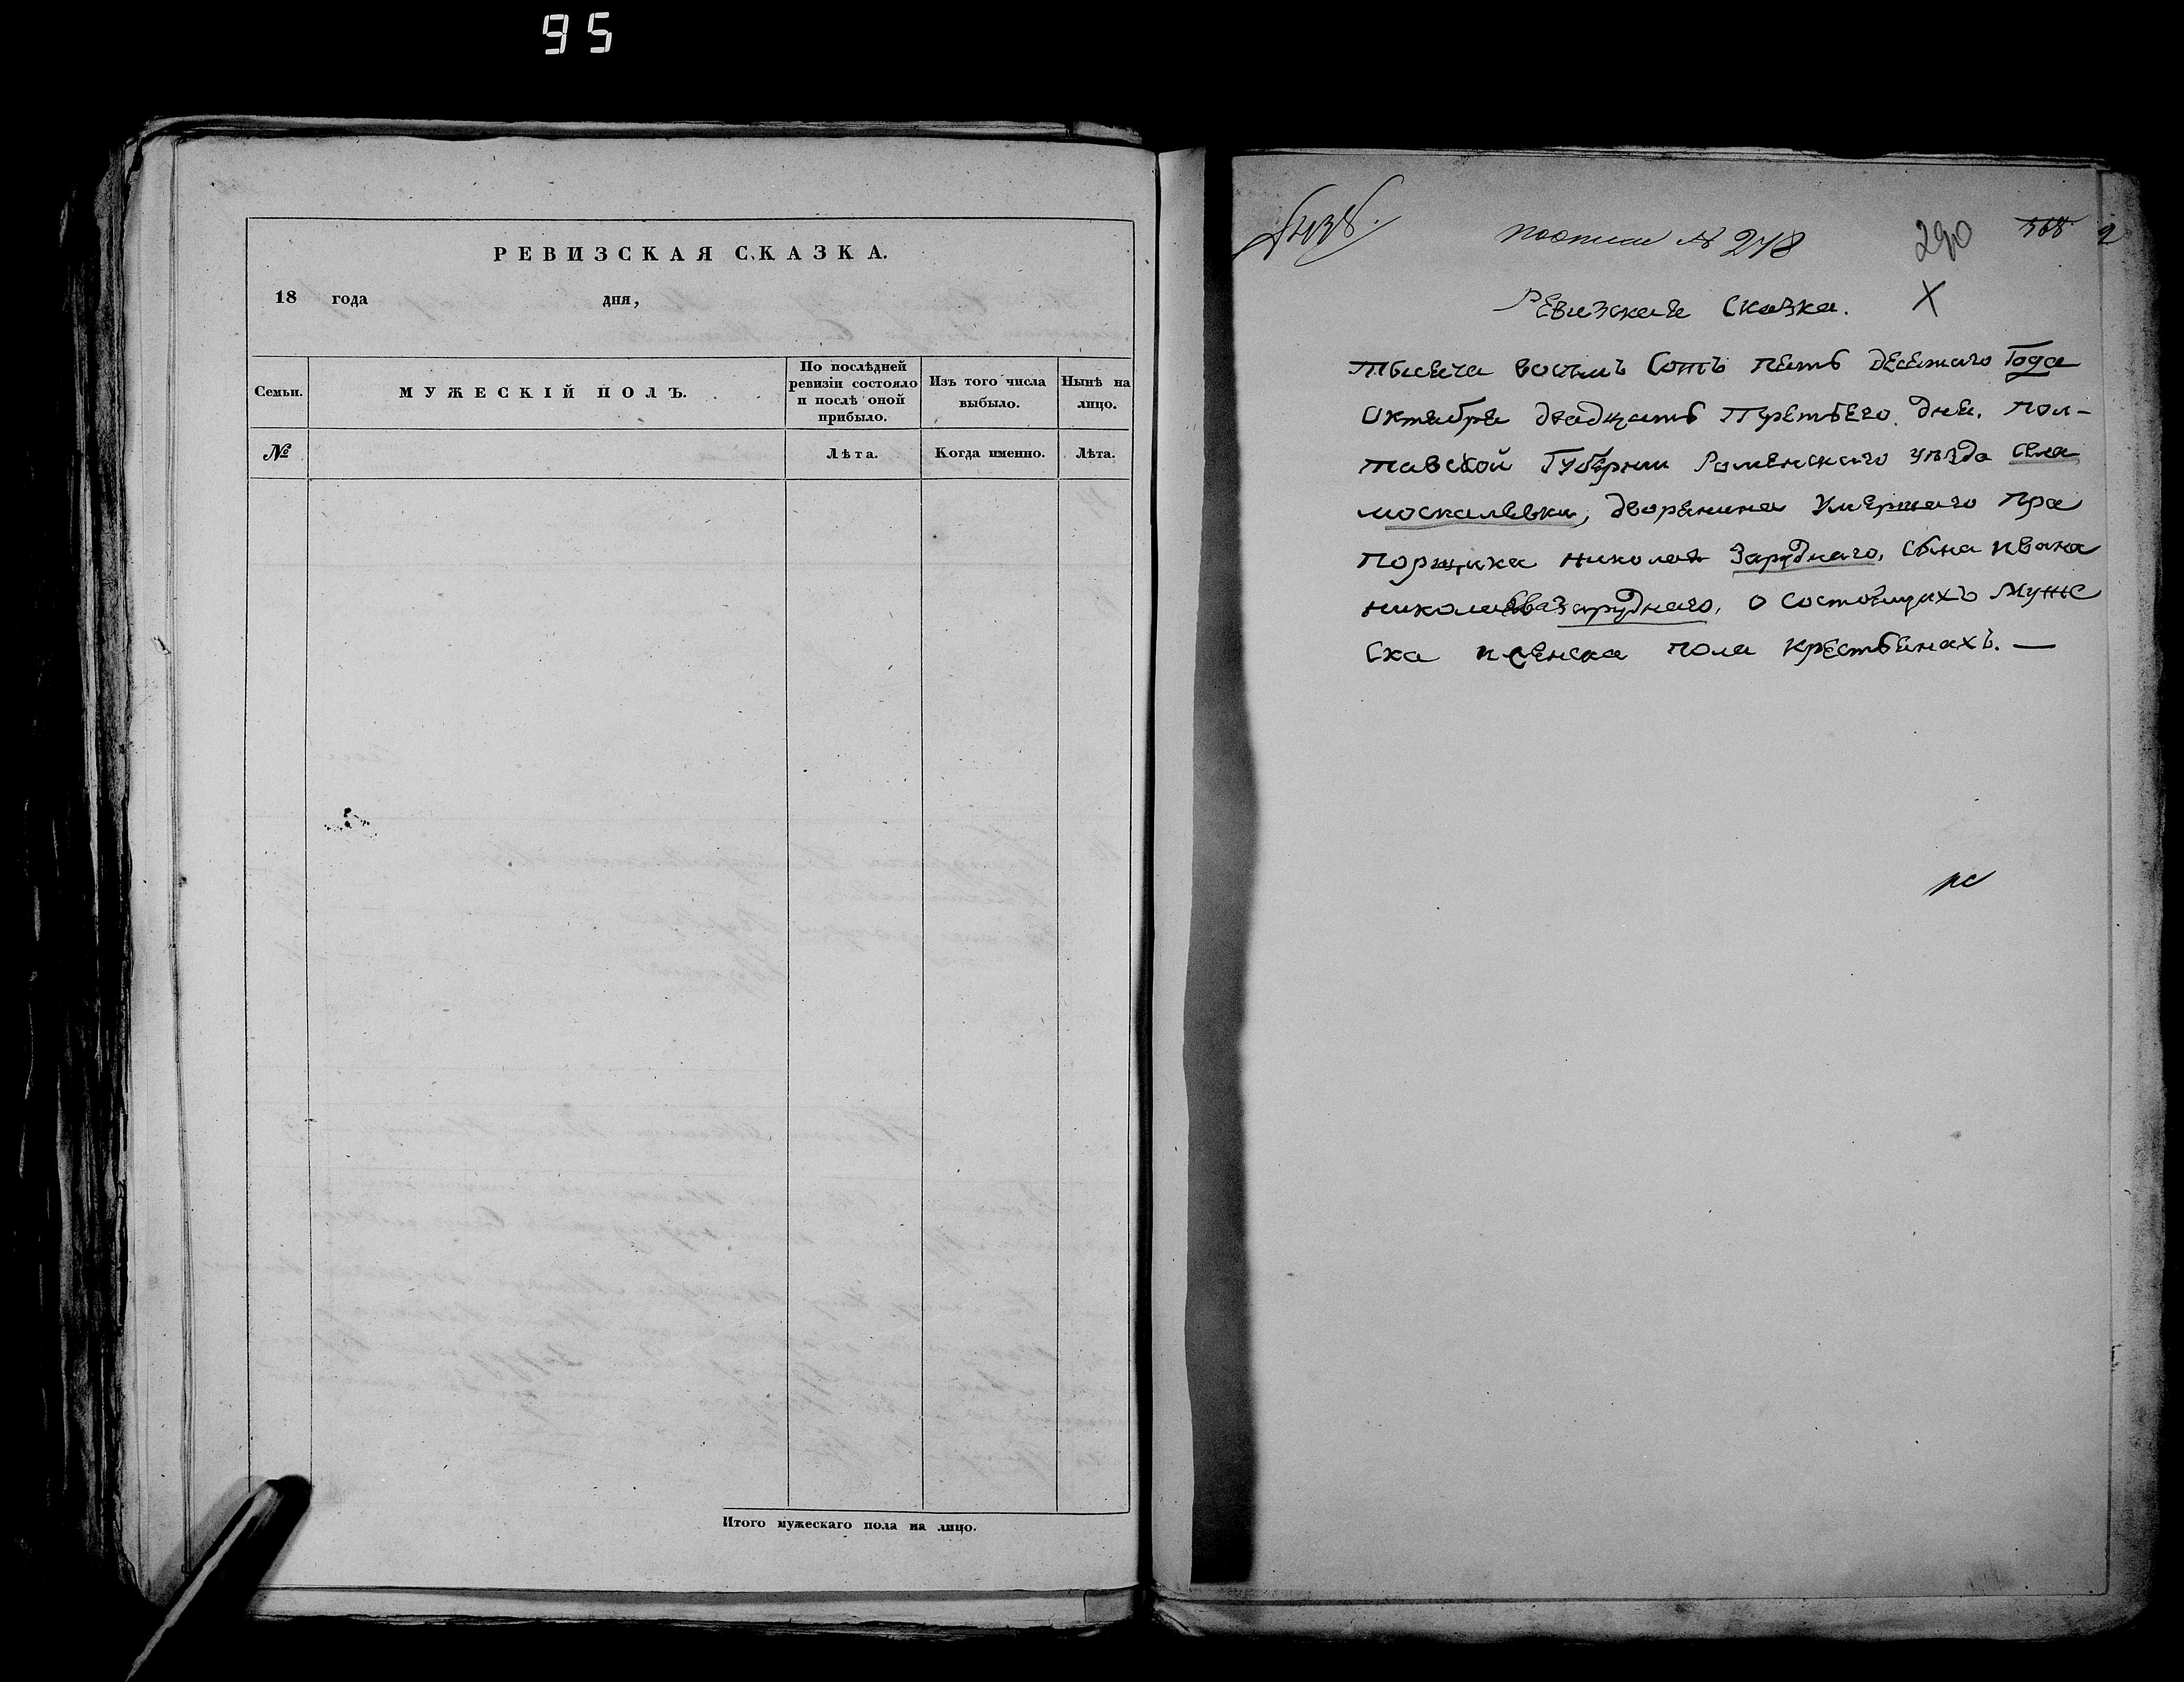 95
РЕВИЗСКАЯ СКАЗКА.
18 года дня,
Семьи.
МУЖЕСКІЙ ПОЛЪ.
По послѣдней
ревизіи состояло
и послѣ оной
прибыло.
Изъ того числа
выбыло.
Нынѣ на
лицо.
№
Лѣта.
Когда именно.
Лѣта.
Итого мужескаго пола на лицо.
№ 248
290
Ревизская Сказка.
тысеча восемъ Сотъ петь десетаго Года
Октебре двадцать Третьего дне. Пол-
тавской Губернии Роменскаго уѣзда села
москалевки, дворенина Умершаго Пра
порщика николая Заруднаго, сына ивана
николаева заруднаго, о состоящихъ Муже
ска и женска пола крестьенахъ. —